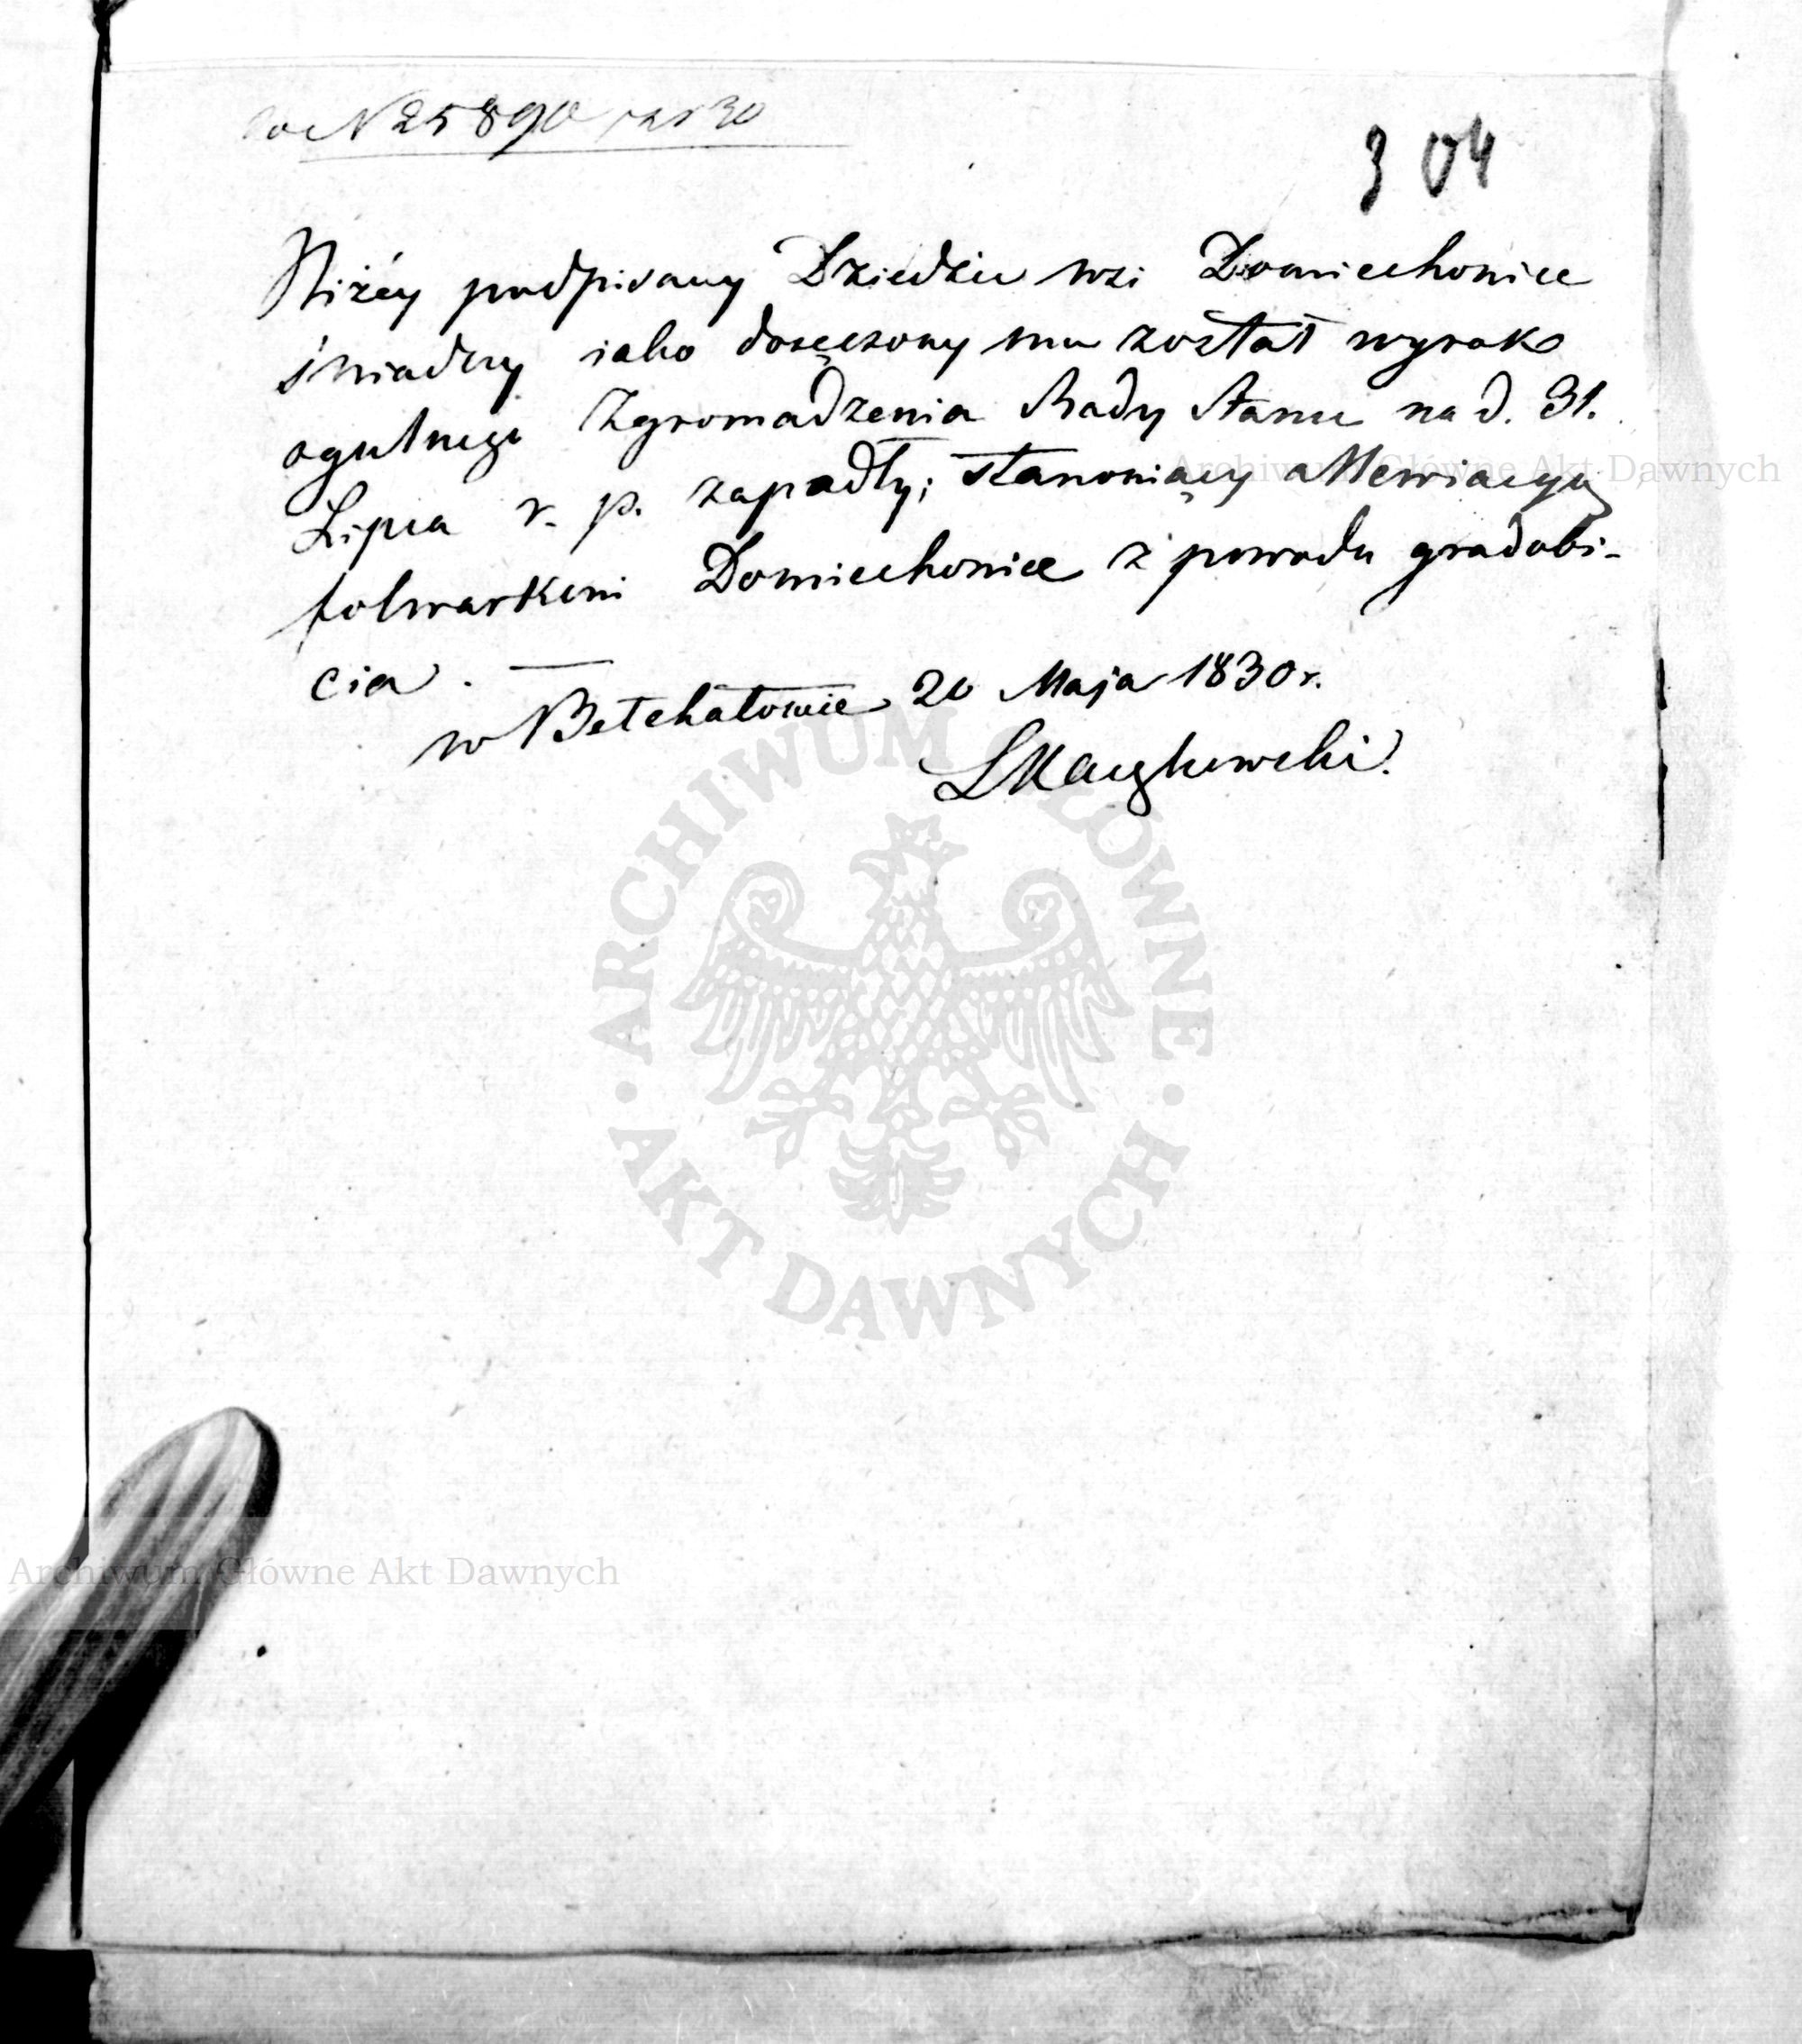 N 25890
304
Niżéy podpisany Dziedzic wsi Domiechowice
świadczy iako doręczony mu został wyrok
ogulnego Zgromadzenia Rady Stanu na d. 31.
Lipca r. p. zapadły; stanowiący alleviacyą
folwarkowi Domiechowice z powodu gradobi-
cia.
w Bełchatowie 20 Maja 1830 r.
Archiwum Główne Akt Dawnych
ARCHIWUM GŁÓWNE
AKT DAWNYCH
Archiwum Główne Akt Dawnych